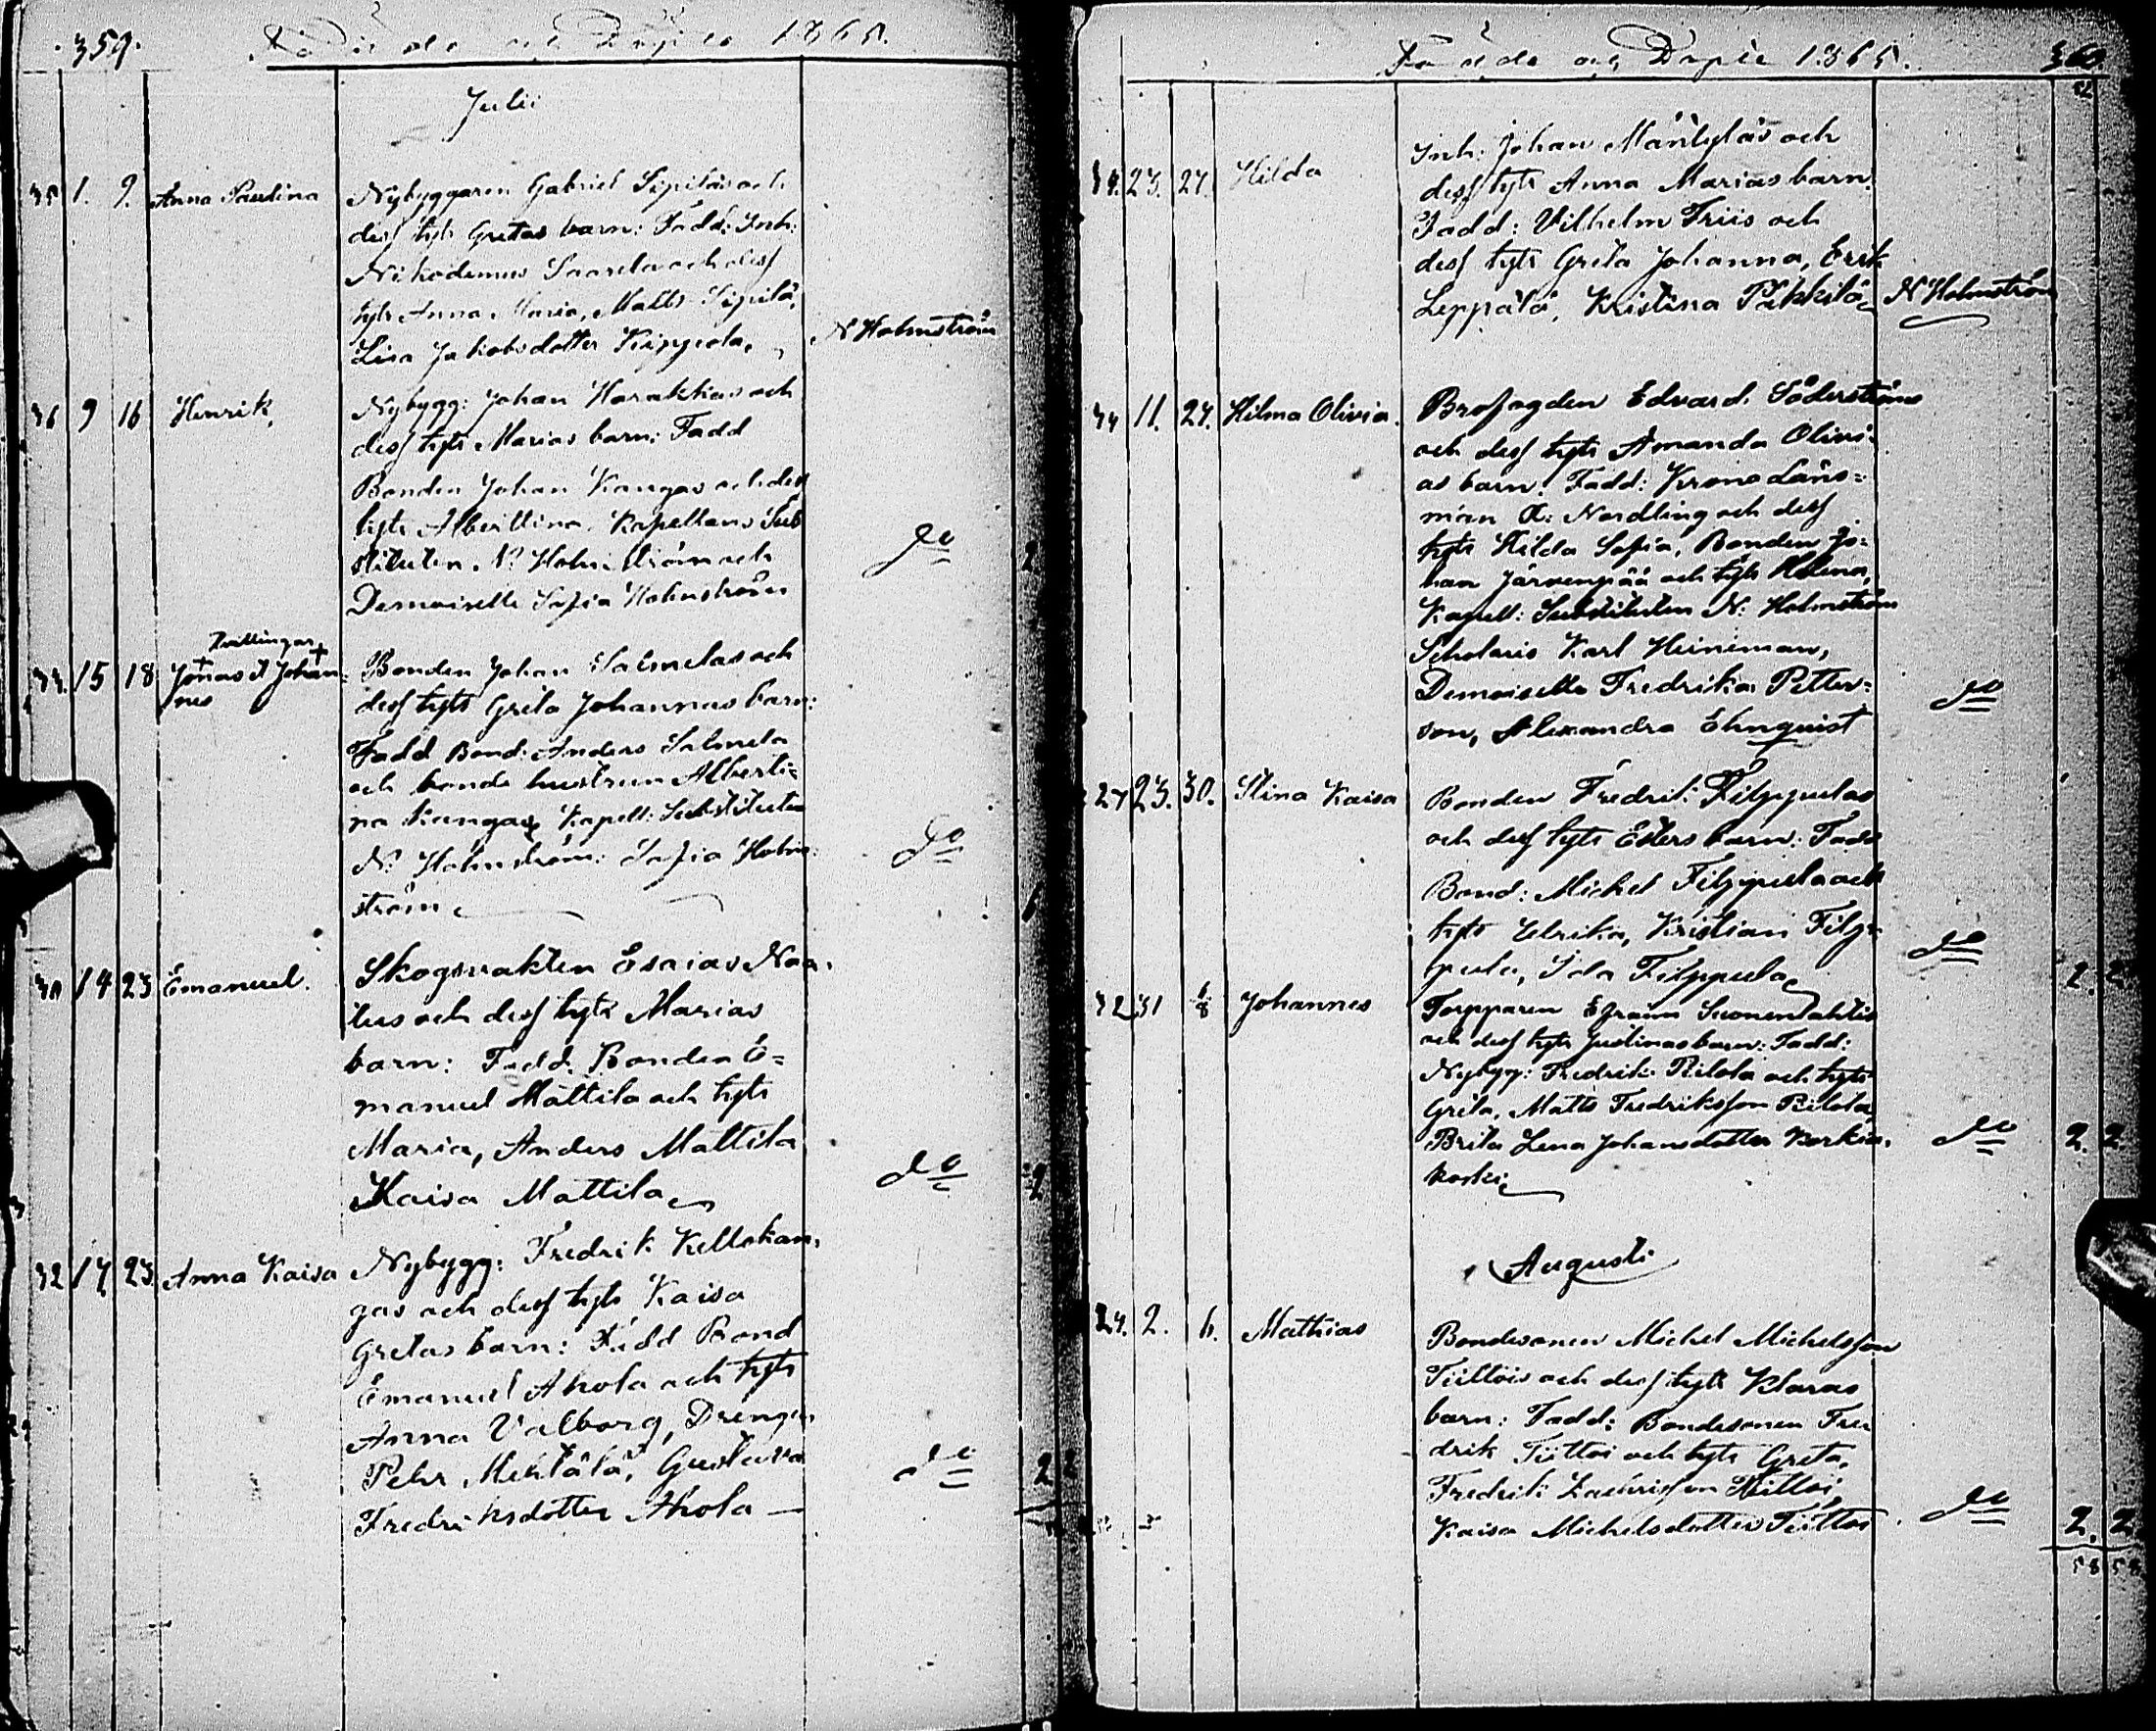 359.
Födde och Döpte 1865.
Julii
35 1. 9. Anna Paulina Nybyggaren Gabriel Sipiläs och
dess hustr Gretas barn: Fadd: Inh:
Nikodemus Saarela och dess
hustr Anna Maria, Matts Sipilä,
Lisa Jakobsdotter N Holmström
36 9 16 Henrik, Nybygg: Johan Harakkas och
dess hustr Marias barn: Fadd
Bonden Johan Kangas och dess
hustr Albertina. Kapellans Sub
stituten N: Holmström och do 2
Demoiselle Sofia Holmström
Tvillingar
15 18 Jonas & Johan= Bonden Johan Salmelas och
nes dess hustr Greta Johannas barn:
Fadd Bond: Anders Salmela
och bonde hustrun Alberti=
na Kangas Kapell: Substituten
N: Holmström: Sofia Holm do
ström
14 23 Emanuel. Skogsvakten Esaias Naa
tus och dess hustr Marias
barn: Fadd. Bonden E=
manuel Mattila och hustr
Maria, Anders Mattila
Kaisa Mattila do 2
32 17 23 Anna Kaisa Nybygg: Fredrik Kellokan,
gas och dess hustr Kaisa
Gretas barn: Fadd Bond
Emanuel Ahola och hustr
Anna Valborg, Drengen
Pehr Mehtälä, Gustava do 2 2
Fredriksdotter Ahola
Födde och Döpte 1865. 360
23. 27. Hilda Inh: Johan Mäntyläs och
dess hustr Anna Marias barn.
Fadd: Vilhelm Friis och
dess hustr Greta Johanna, Erik
Leppälä, Kristina Päkkilä N Holmström
34 11. 27. Hilma Olivia. Brofogden Edvard Söderströms
och dess hustr Amanda Olivi=
as barn. Fadd: Krono Läns=
man A: Nordling och dess
hustr Hilda Sofia, Bonden Jo=
han Järvenpää och hustr Helena,
Kapell: Substituten N: Holmström
Scholaris Karl Heineman,
Demoiselle Fredrika Petter=
son, Alexandra Ehnquist do
27 23. 30. Stina Kaisa Bonden Fredrik Filppulas
och dess hustr Esters barn: Fadd
Bond: Michel Filppula och
hustr Ulrika, Kristian Filp=
pula, Ida Filppula do 2. 2
32 31 6/8 Johannes Torpparen Efraim Suomenlahtis
och dess hustr Justinas barn: Fadd:
Nybygg: Fredrik Rilola och hustr
Greta, Matts Fredriksson Rilola,
Brita Lena Johansdotter Korkia= do 2. 2
koski
Augusti
24. 2. 6. Mathias Bondesonen Michel Michelsson
Tiittois och dess hustr Klaras
barn: Fadd: Bondesonen Fre
drik Tiittoi och hustr Greta,
Fredrik Zachrisson Tiittoi,
Kaisa Michelsdotter Tiittoi do 2. 2
58 58